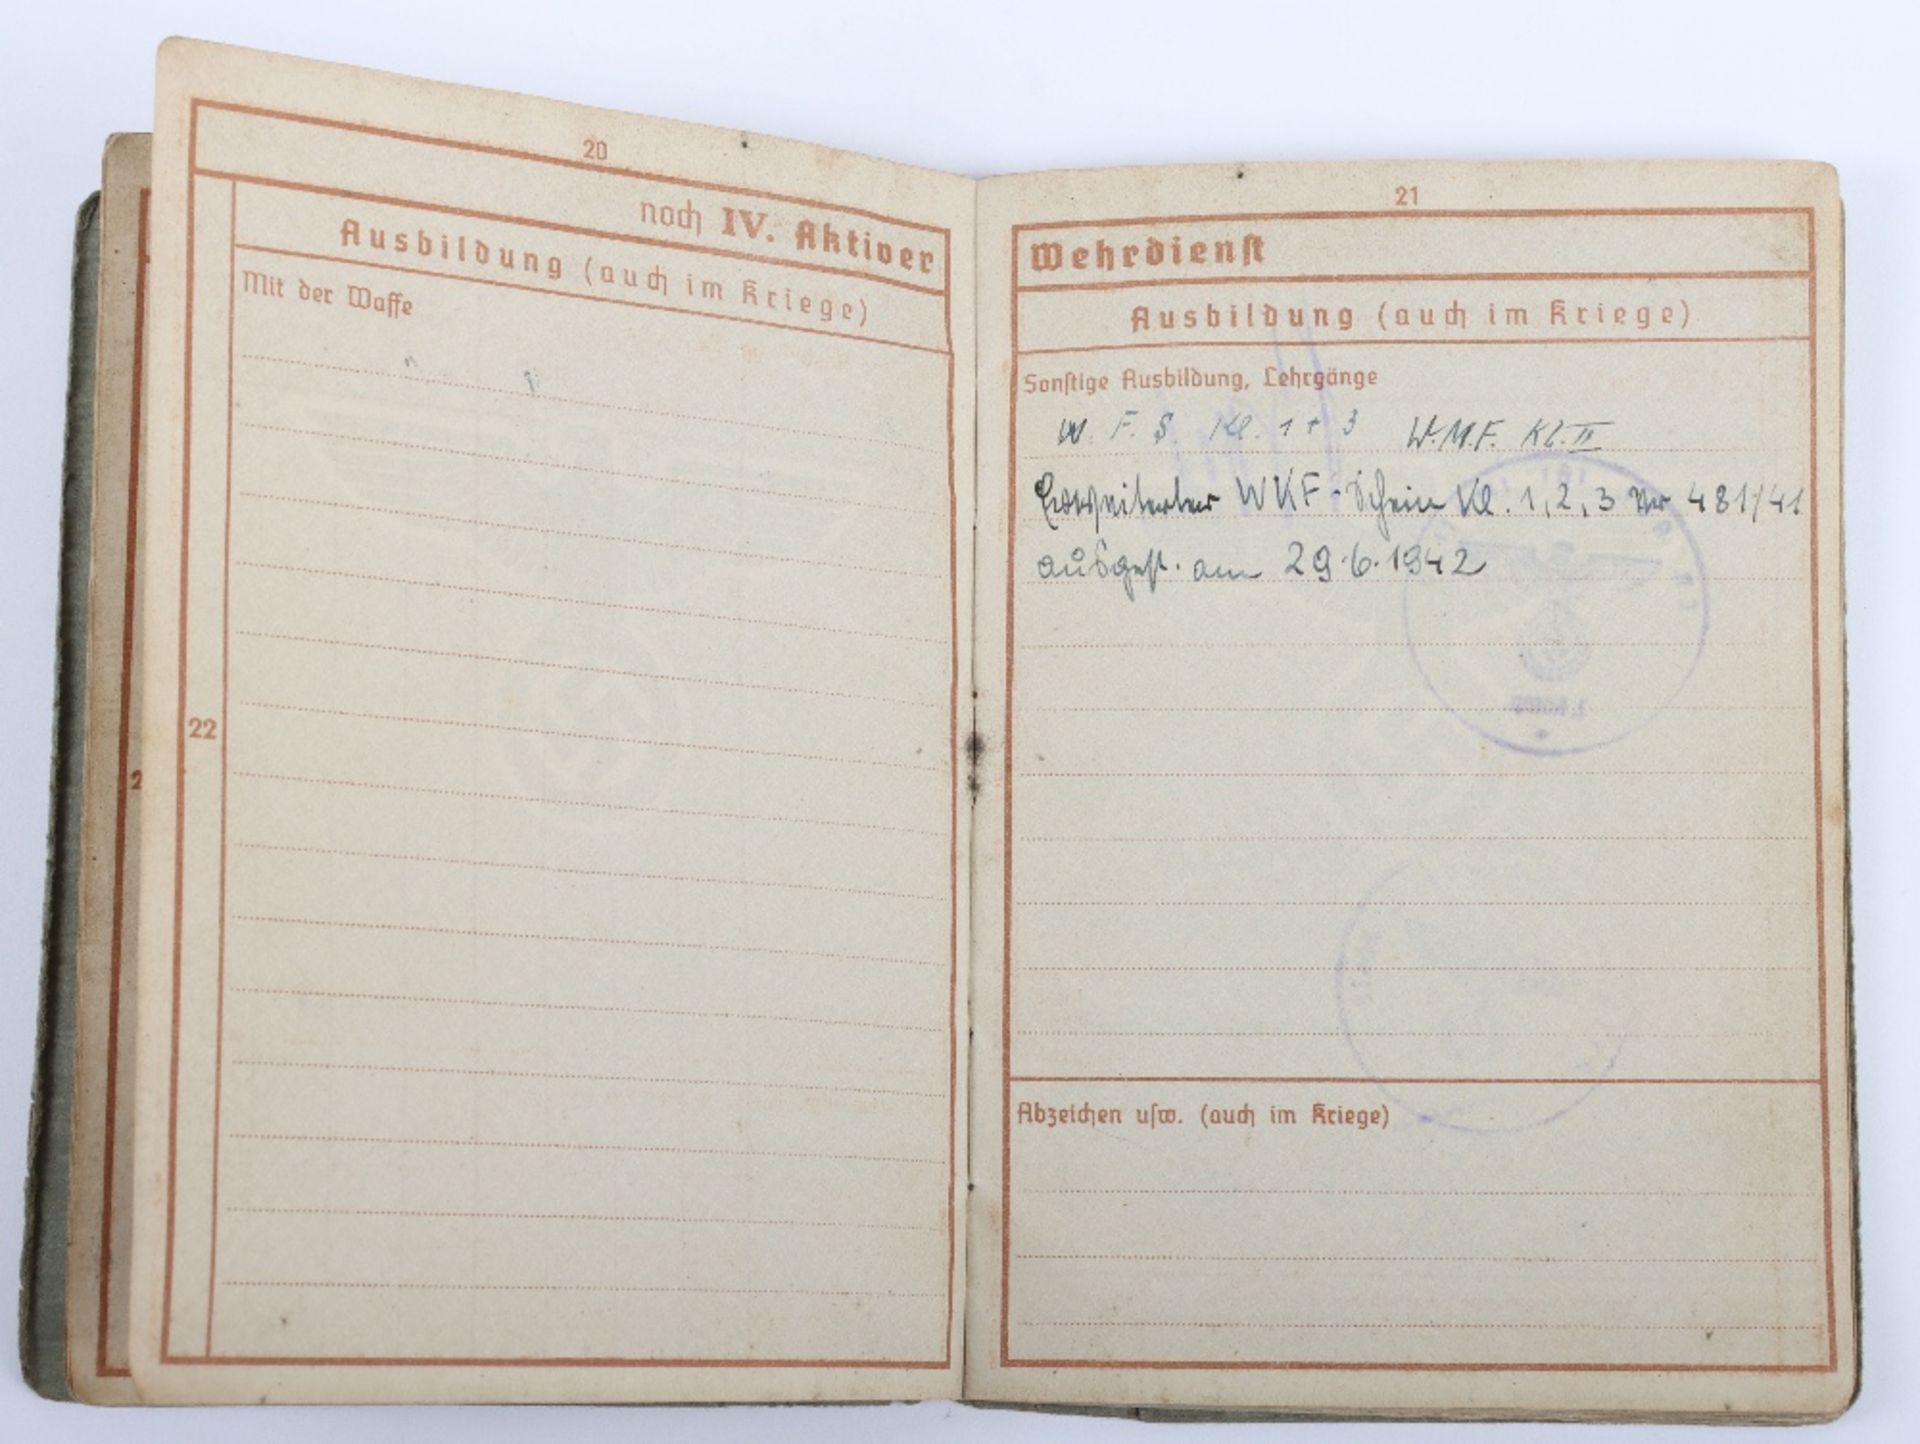 20
noch IV. Aktiver
Ausbildung (auch im Kriege)
Mit der Waffe
22
21
Wehrdienst
Ausbildung (auch im Kriege)
Sonstige Ausbildung, Lehrgänge
W. F. S. Kl. 1 + 3 W.M.F. Kl. II
Erweiterter WKF-Schein Kl. 1, 2, 3 Nr 481/41
ausgest. am 29.6.1942
Abzeichen usw. (auch im Kriege)